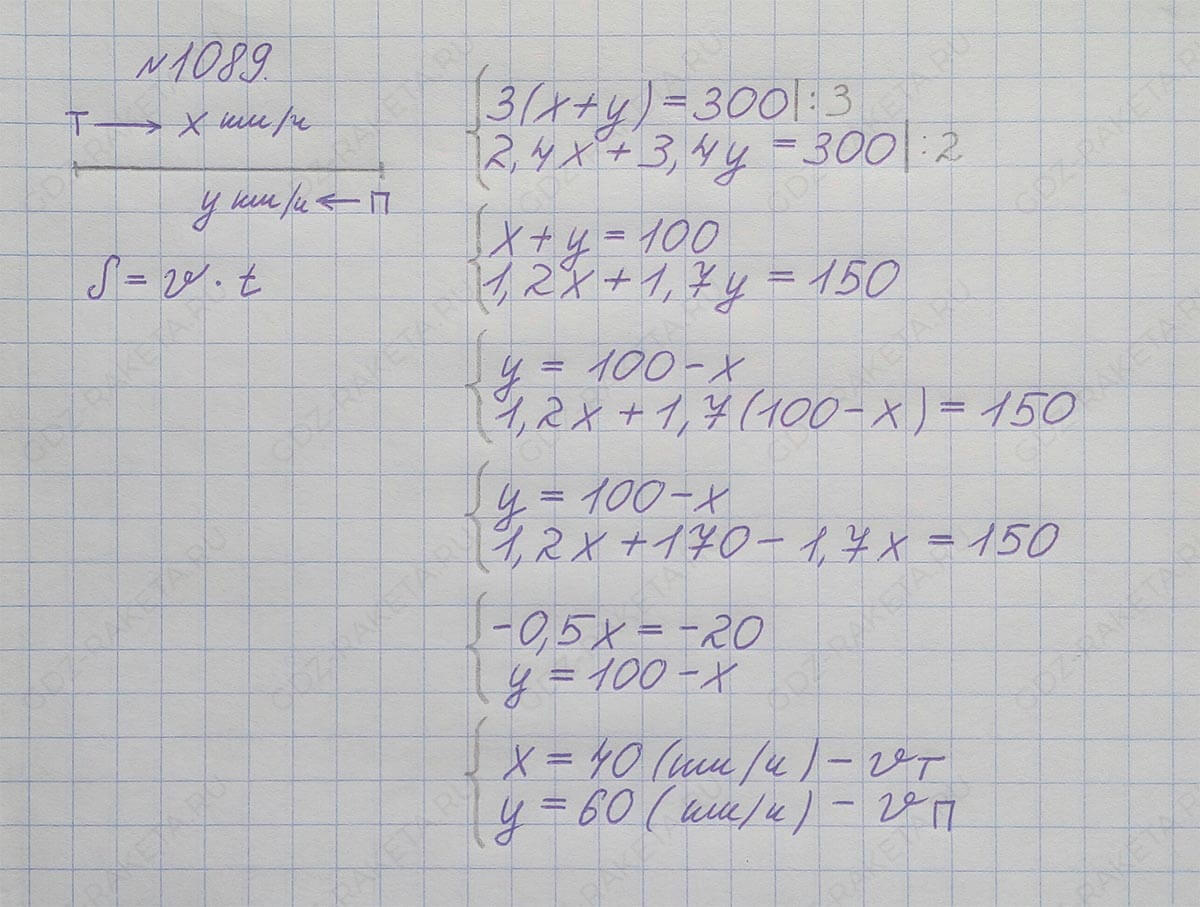 №1089.
Т → х км/ч
у км/ч ← П
S = v · t
3(х+у) = 300 | : 3
2,4х + 3,4у = 300 | : 2
х + у = 100
1,2х + 1,7у = 150
у = 100 - х
1,2х + 1,7(100 - х) = 150
у = 100 - х
1,2х + 170 - 1,7х = 150
-0,5х = -20
у = 100 - х
х = 40 (км/ч) - vТ
у = 60 (км/ч) - vП
GDZ-RAKETA.RU